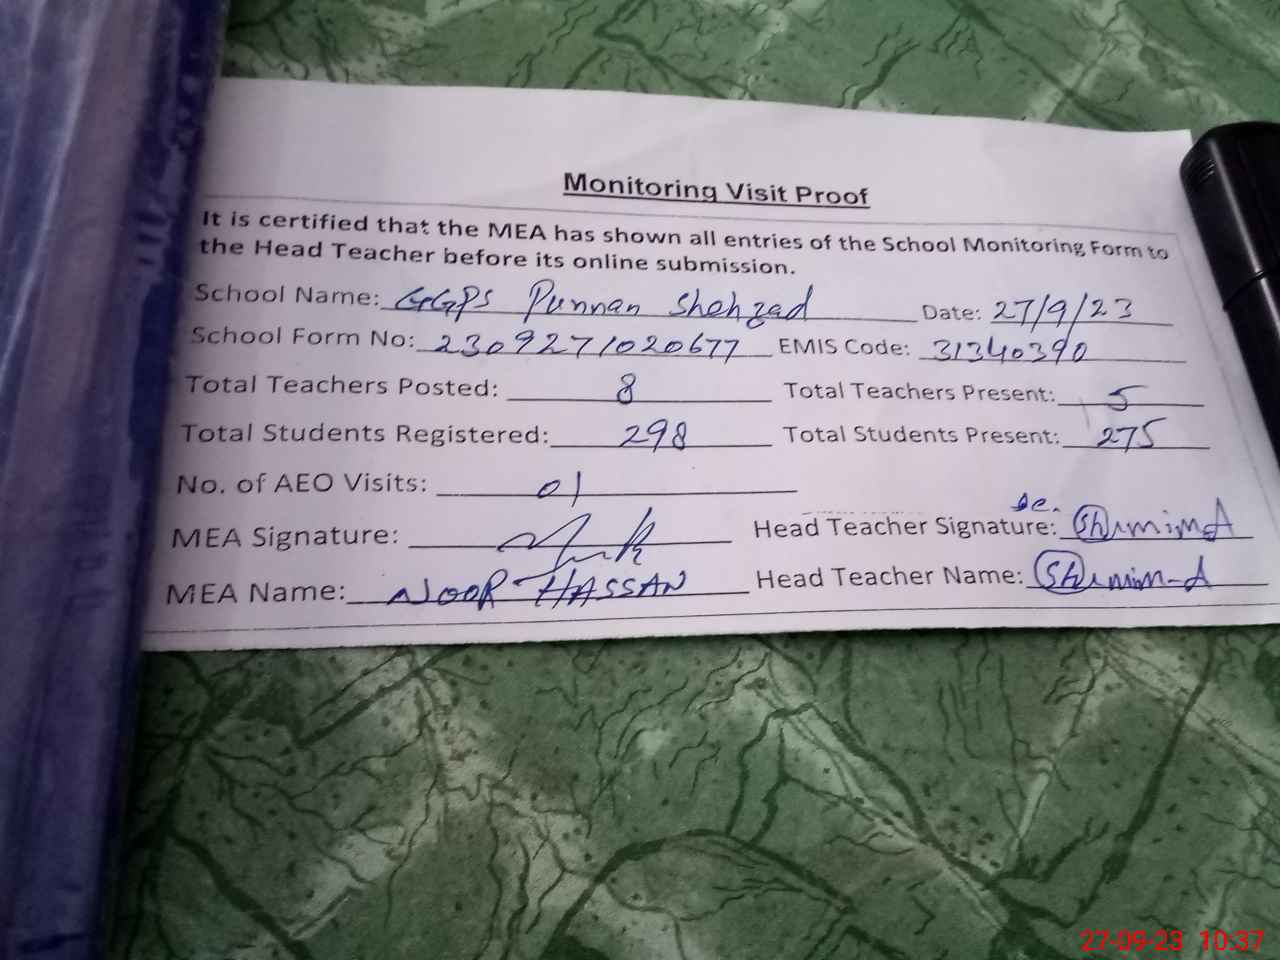 Monitoring Visit Proof
It is certified that the MEA has shown all entries of the School Monitoring Form to
the Head Teacher before its online submission.
School Name: GGPS Punnan Shehzad Date: 27/9/23
School Form No: 2309271020677 EMIS Code: 31340390
Total Teachers Posted: 8 Total Teachers Present: 5
Total Students Registered: 298 Total Students Present: 275
No. of AEO Visits: 01
MEA Signature: Head Teacher Signature:
MEA Name: NOOR HASSAN Head Teacher Name:
27-09-23 10:37